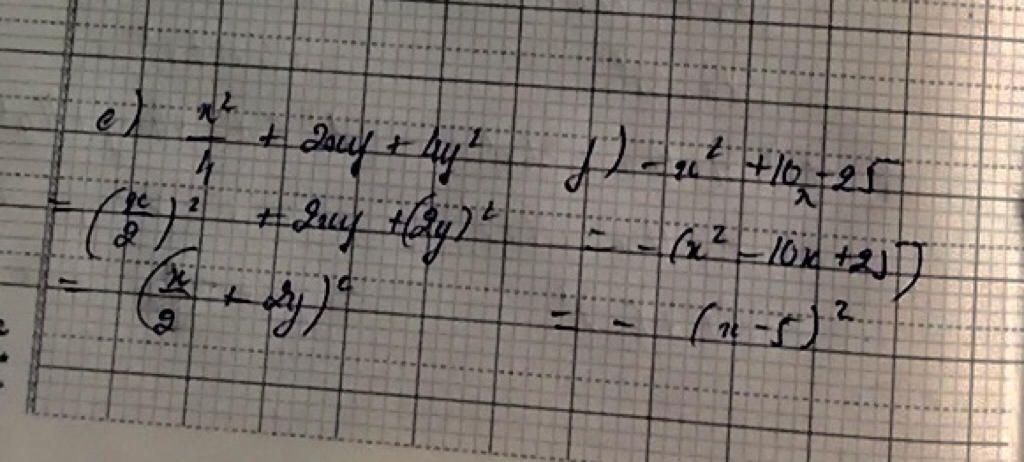 e) x²/4 + 2xy + 4y²
= (x/2)² + 2xy + (2y)²
= (x/2 + 2y)²
f) - x² + 10x - 25
= - (x² - 10x + 25)
= - (x - 5)²